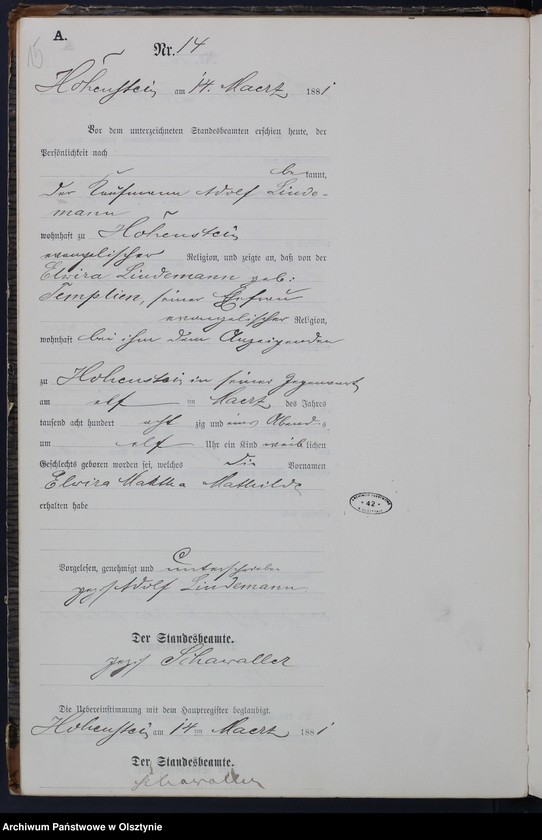 A.
15
Nr. 14
Hohenstein am 14. Maerz 1881
Vor dem unterzeichneten Standesbeamten erschien heute, der
Persönlichkeit nach
bekannt,
der Kaufmann Adolf Linde-
mann
wohnhaft zu Hohenstein
evangelischer Religion, und zeigte an, daß von der
Elvira Lindemann geb:
Templien, seiner Ehefrau
evangelischer Religion,
wohnhaft bei ihm dem Anzeigenden
zu Hohenstein in seiner Gegenwart
am elf im Maerz des Jahres
tausend acht hundert acht zig und eins Abends
um elf Uhr ein Kind weiblichen
Geschlechts geboren worden sei, welches die Vornamen
Elvira Martha Mathilde
erhalten habe
Vorgelesen, genehmigt und unterschrieben
gez: Adolf Lindemann
Der Standesbeamte.
gez: Schawaller
Die Uebereinstimmung mit dem Hauptregister beglaubigt.
Hohenstein am 14 ten Maerz 1881
Der Standesbeamte.
Schawaller
42
Archiwum Państwowe w Olsztynie